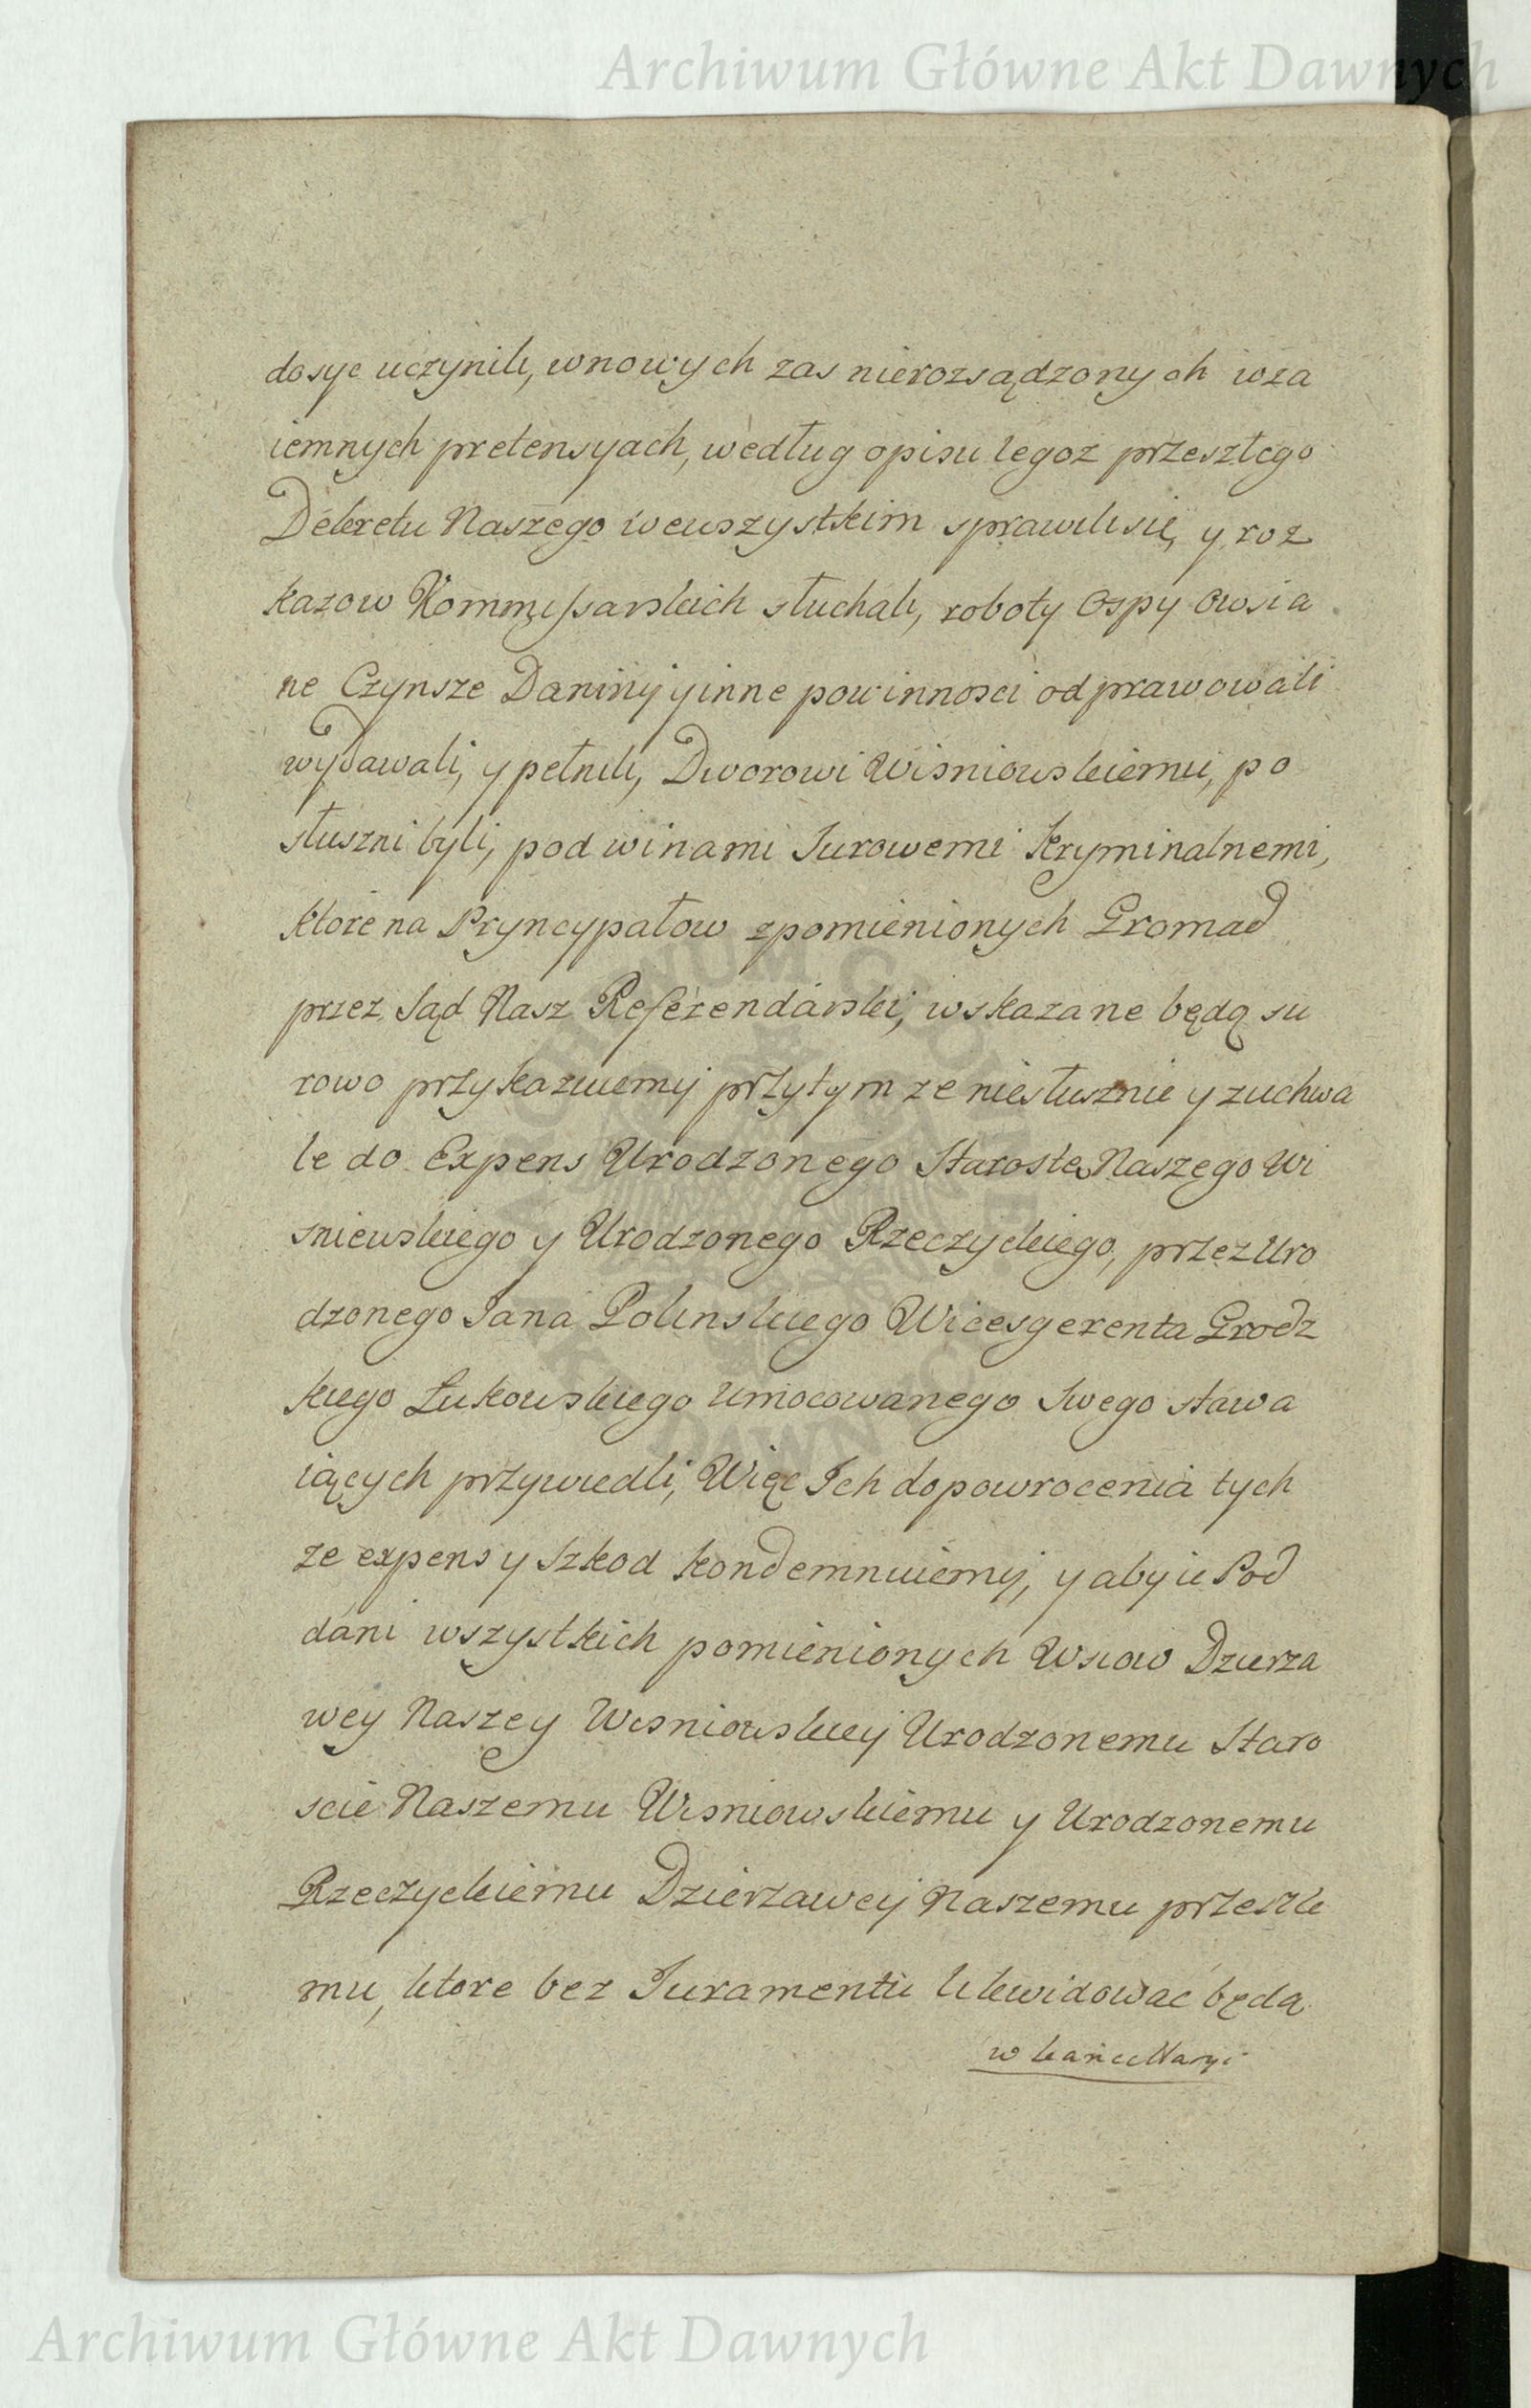 Archiwum Główne Akt Dawnych
dosyc uczynili, wnowych zas nierozsądzonych wza
iemnych pretensyach, według opisu tegoz przeszłego
Dekretu Naszego wewszystkim sprawili się, y roz
kazow Kommissarskich słuchali, roboty Ospy Owsia
ne Czynsze Daniny y inne powinnosci odprawowali
wydawali, y pełnili, Dworowi Wisniowskiemu, po
słuszni byli, pod winami Surowemi Kryminalnemi,
ktore na Pryncypałow zpomienionych Gromad
przez Sąd Nasz Referendarski, wskazane będą su
rowo przykazuiemy przytym ze niesłusznie y zuchwa
le do Expens Urodzonego Starostę Naszego Wi
sniewskiego y Urodzonego Rzeczyckiego, przez Uro
dzonego Jana Polinskiego Wicesgerenta Grodz
kiego Łukowskiego Umocowanego Swego stawa
iących przywiedli, Więc Ich do powrocenia tych
ze expens y Szkod kondemnuiemy, y aby ie Pod
dani wszystkich pomienionych Wsiow Dzierza
wey Naszey Wisniowskiey Urodzonemu Staro
scie Naszemu Wisniowskiemu y Urodzonemu
Rzeczyckiemu Dzierzawcy Naszemu przeszłe
mu, ktore bez Juramentu likwidować będą
w kancellaryi
ARCHIWUM GŁÓWNE AKT DAWNYCH
Archiwum Główne Akt Dawnych